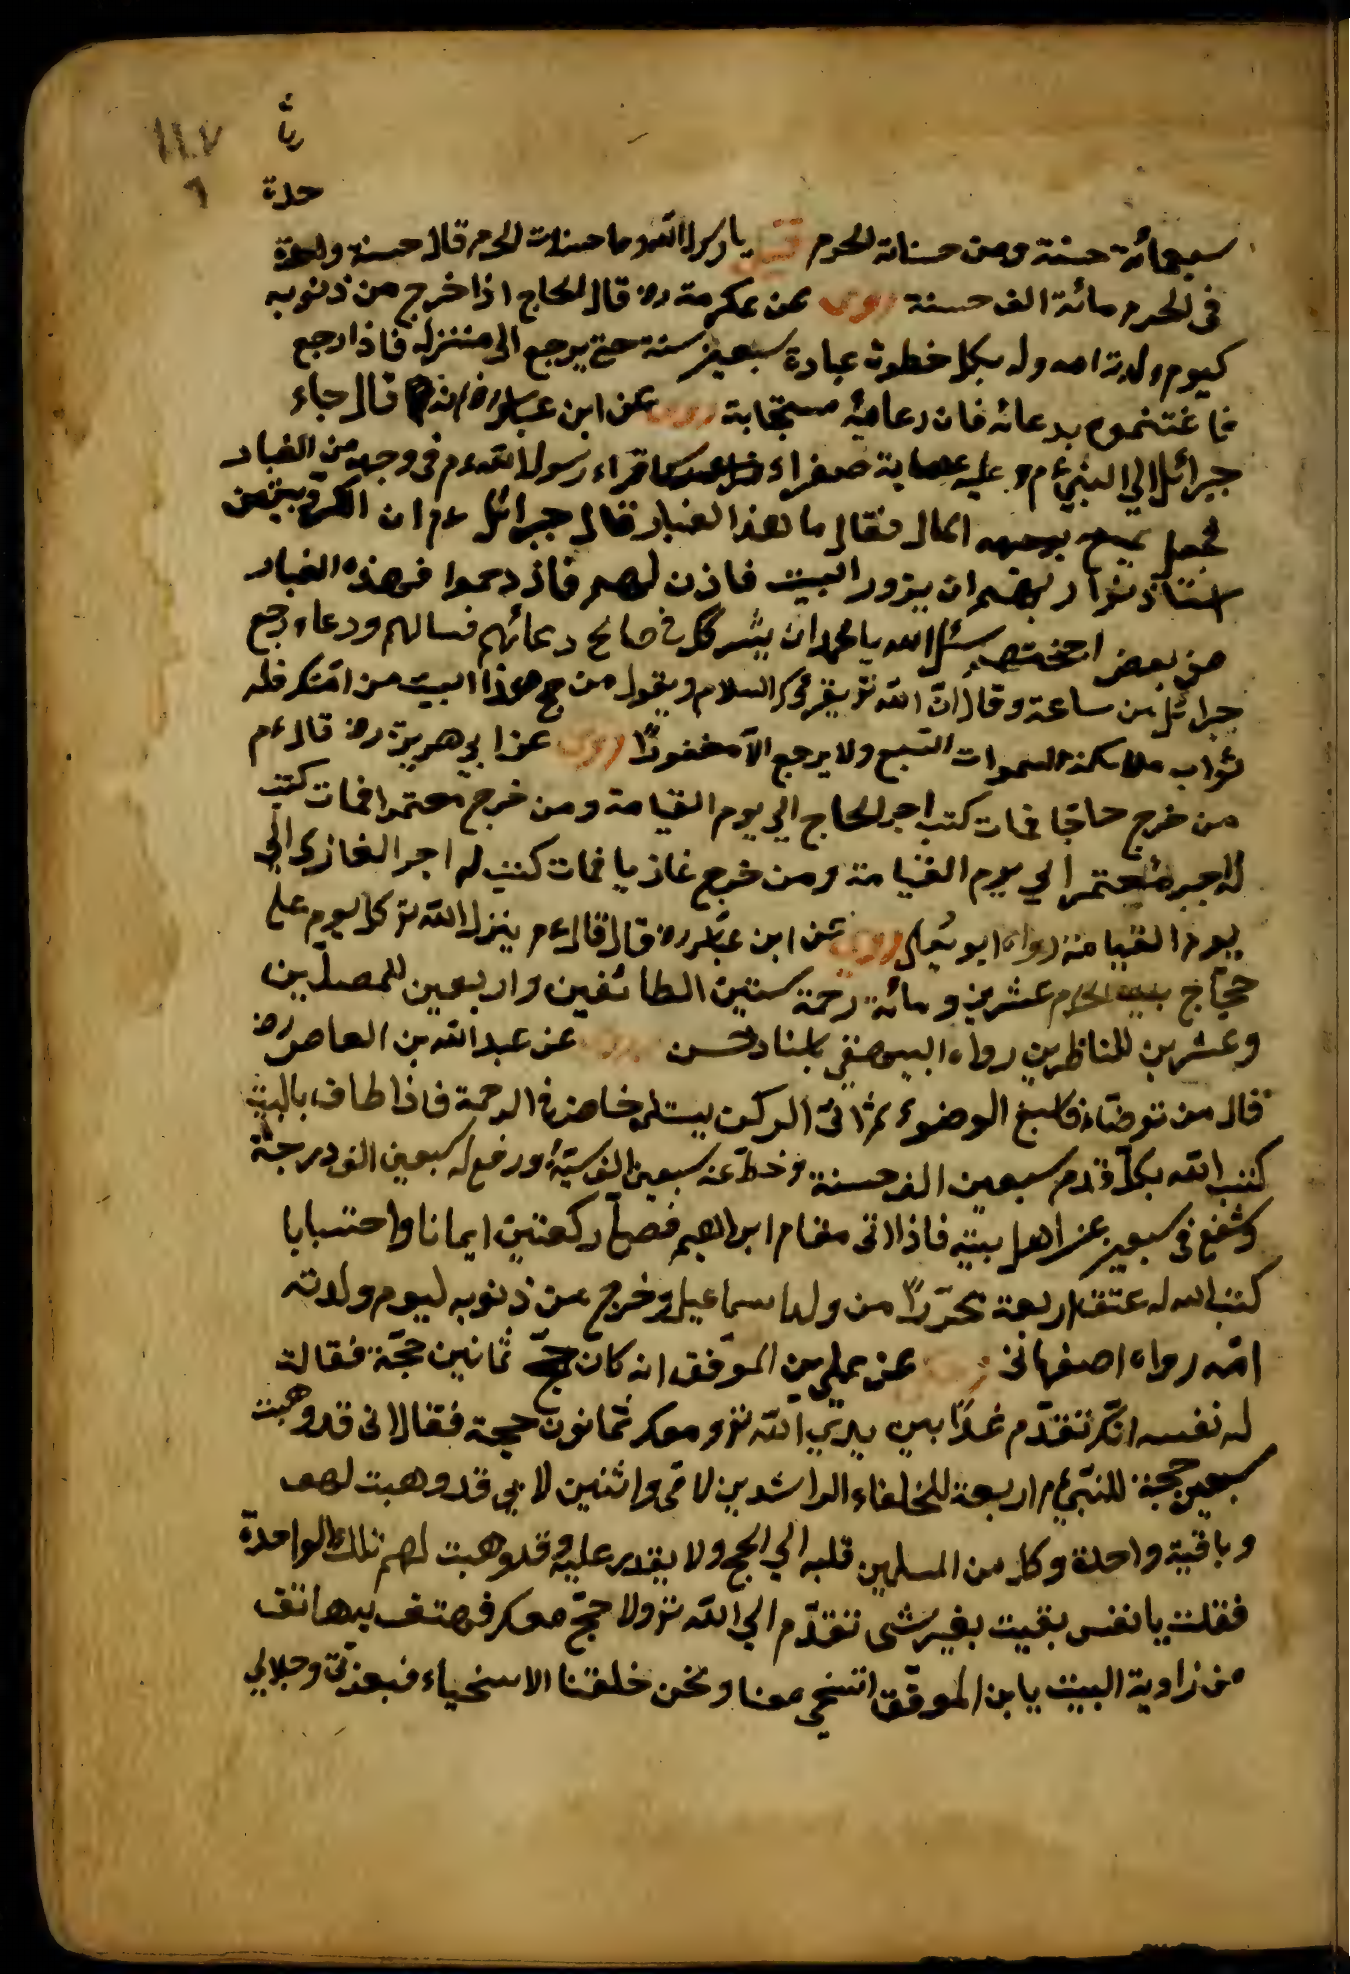 ١١٠٧
٦
سبعمائة حسنة ومن حسنات الحرم قيل يا رسول الله وما حسنات الحرم قال حسنة واحدة
فى الحرم مائة الف حسنة روى عن عكرمة رض قال الحاج اذا خرج من ذنوبه
كيوم ولدته امه وله بكل خطوة عبادة سبعين سنة حتى يرجع الى منزله فاذا رجع
فاغتنموه بدعائه فان دعائه مستجابة روى عن ابن عباس رض انه قال جاء
جبرائل الي النبي ءم وعليه عصابة صفراء رسول الله ءم فى وجهه من الغبار
فجعل يمسح بوجهه فقال ما هذا الغبار قال جبرائل ءم ان
ان يزور البيت فاذن لهم فاذ دحموا فهذه الغبار
من بعض اجنحتهم سئل الله يا محمد ان يشركك فى صالح دعائهم فسالهم ودعاء رجع
جبرائل من ساعة وقال انّ الله تع يقرئك السلام ويقول من حج هذا البيت من امّتك فله
ثواب ملائكة السموات السّبع ولا يرجع الاّ مغفورًا روى عن ابي هريرة رض قال ءم
من خرج حاجّا فمات كتب اجر الحاج الي يوم القيامة ومن خرج معتمرا فمات كتب
له اجر معتمرا الي يوم القيامة ومن خرج غازيا فمات كتب له اجر الغازى الي
يوم القيامة رواه ابو يعلى روى عن ابن عبّاس رض قال قال ءم ينزل الله تع كل يوم على
حجّاج بيت الحرم عشرين ومائة رحمة ستين الطائفين واربعين للمصلّين
وعشرين للناظرين رواه البيهقي باسناد حسن روى عن عبد الله بن العاص رض
قال من توضّاء فاسبغ الوضوء ثم اتى الركن يستلم خاض فى الرحمة فاذا طاف بالبيت
كتب الله بكلّ قدم سبعين الف حسنة وحطّ عنه سبعين الف سيّئة ورفع له سبعين الف درجة
وشفع فى سبعين من اهل بيته فاذا اتى مقام ابراهيم فصلّى ركعتين ايمانا واحتسابا
كتب الله له عتق اربعة محرّرًا من ولد اسماعيل وخرج من ذنوبه ليوم ولدته
امّه رواه اصفهانى روى عن علي بن الموّفق انه كان حجّ ثمانين حجّة فقالت
له نفسه انّك تتقدّم غدًا بين يدي الله تع ومعك ثمانون حجة فقال انى قد وهبت
سبعين حجة للنّبي ءم اربعة للخلفاء الراشدين لامّى واثنين لابي قد وهبت لهم
وباقية واحدة وكل من المسلمين قلبه الي الحج ولا يقدر عليه وقد وهبت لهم تلك الواحدة
فقلت يا نفس بقيت بغير شى تتقدّم الي الله تع ولا حجّ معك فهتف بها تف
من زاوية البيت يا بن الموّفق اتسخى معنا ونحن خلقنا الاسخياء فبعزّتى وجلالي